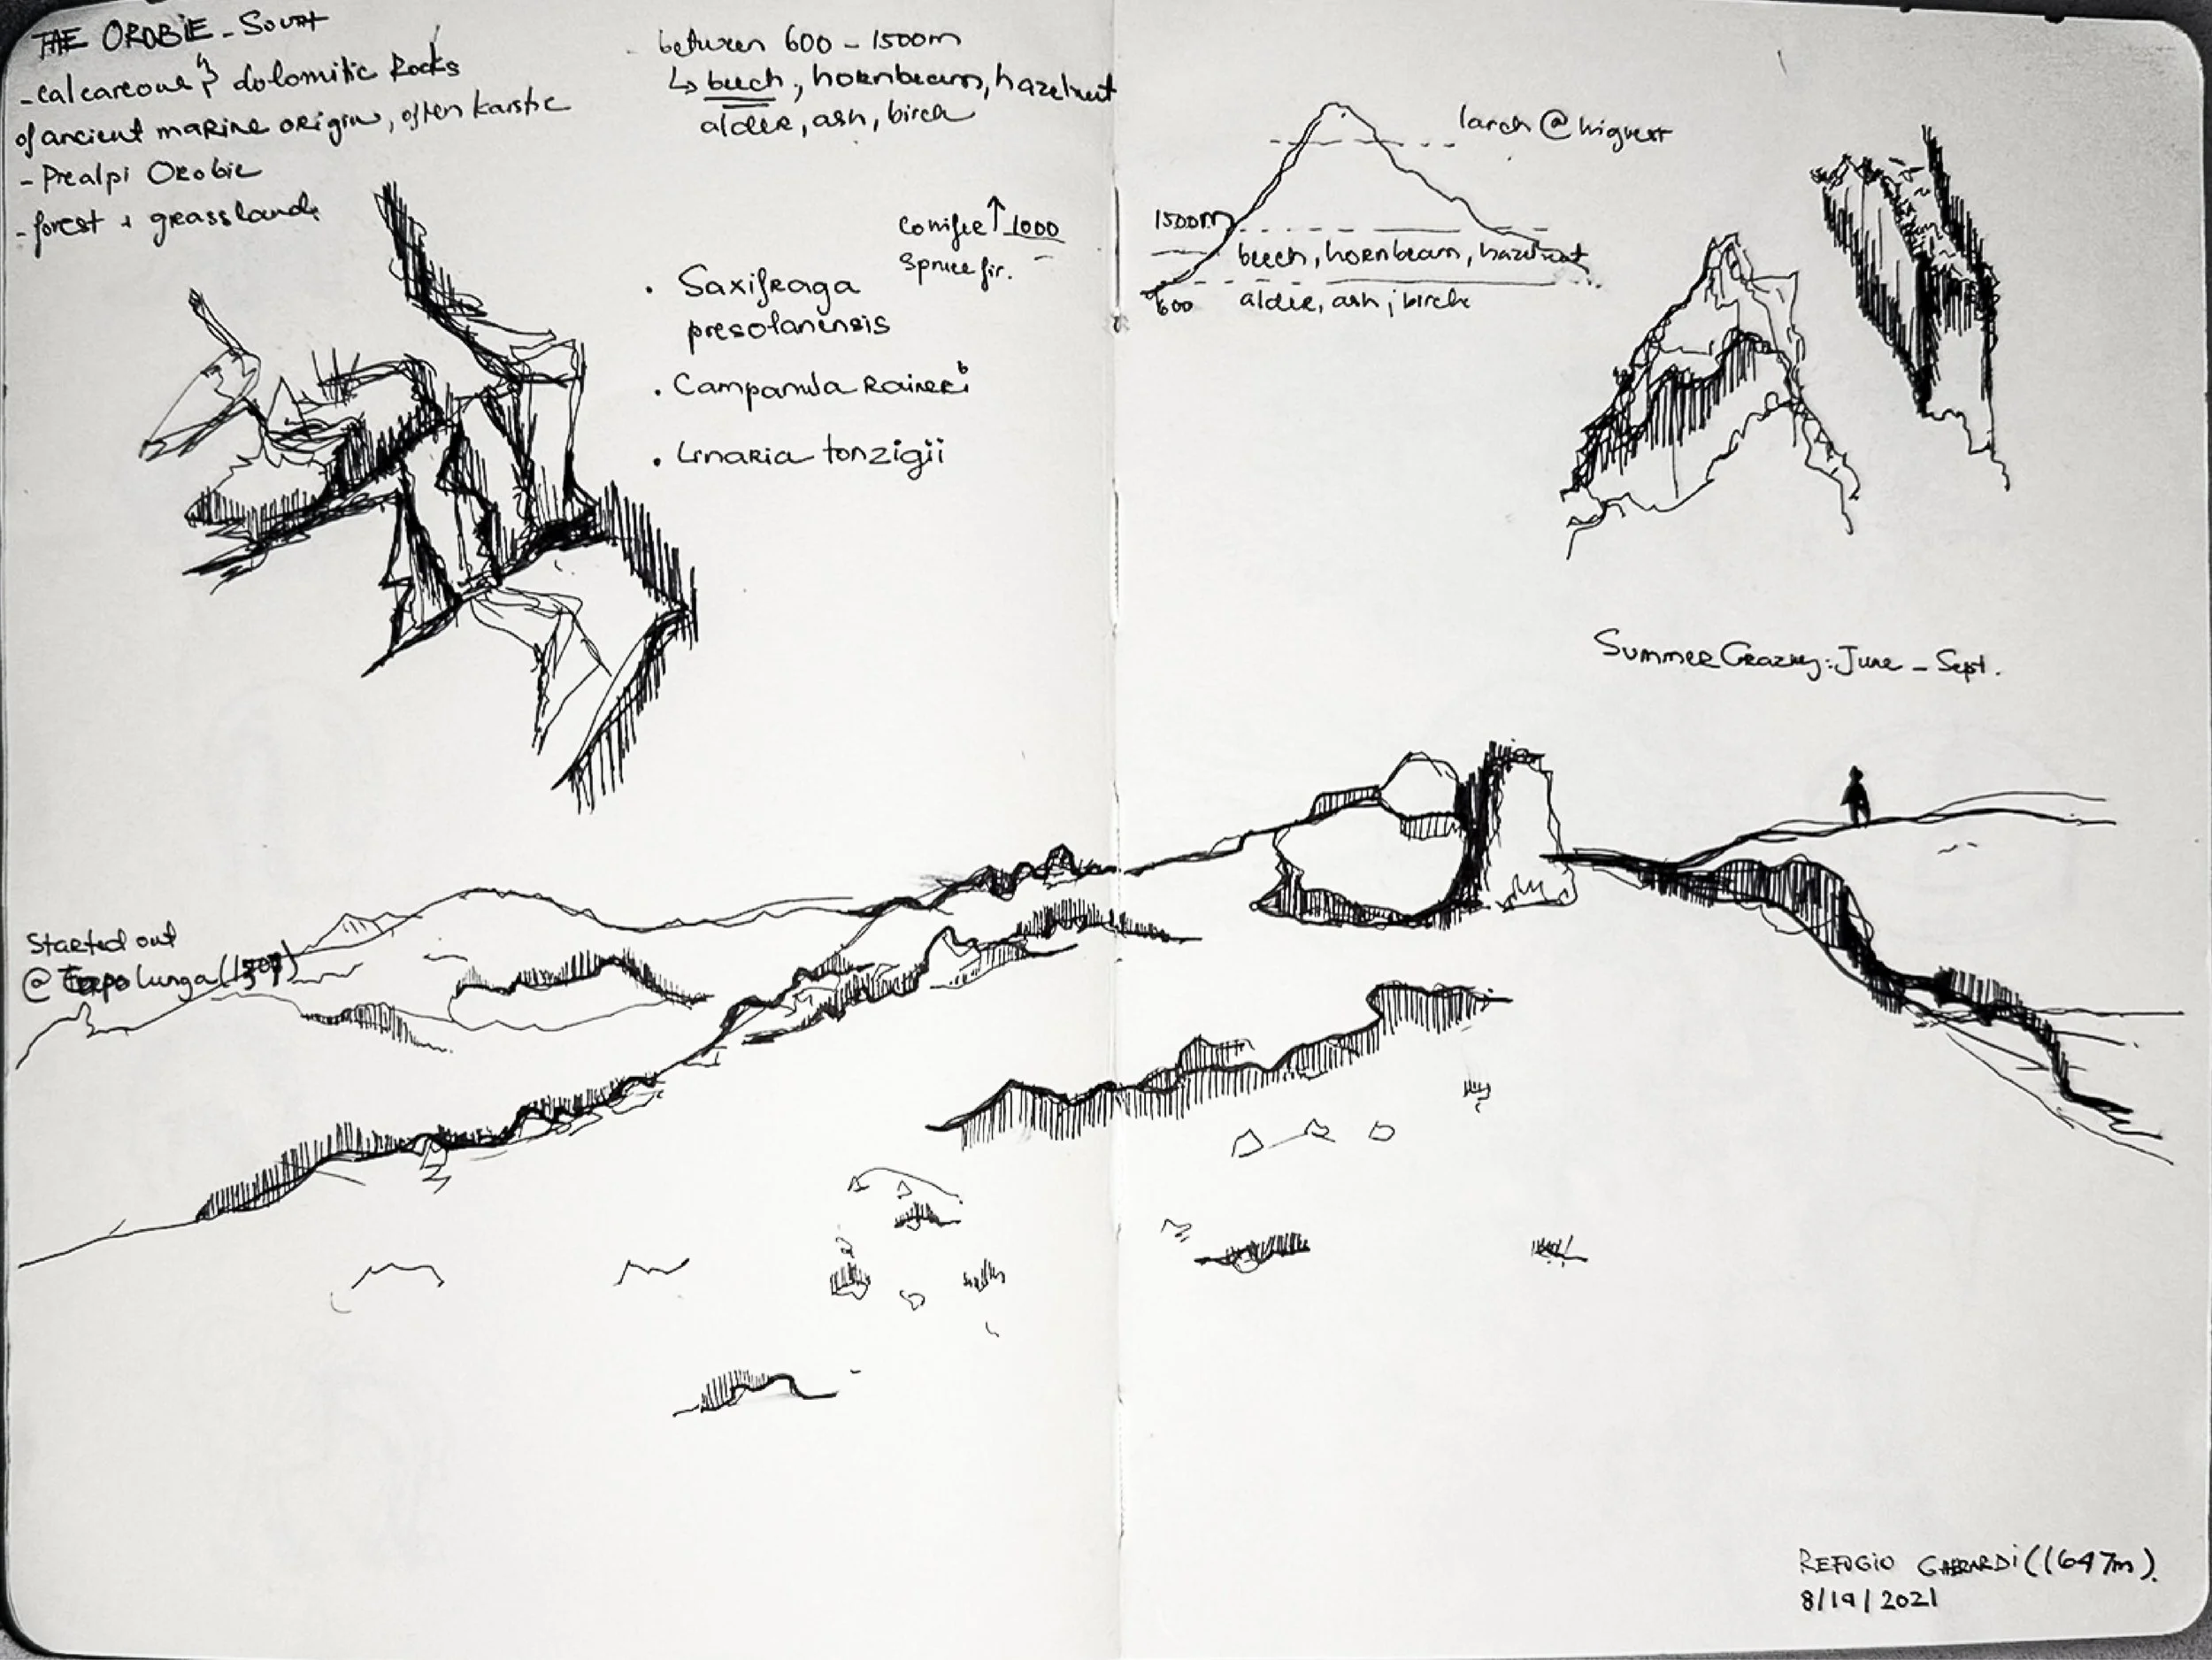 THE OROBIE - SOUTH
- calcareous & dolomitic Rocks
of ancient marine origin, often karstic
- Prealpi Orobie
- forest + grasslands
between 600 - 1500m
↳ beech, hornbeam, hazelnut
alder, ash, birch
conifer ↑ 1000
spruce fir.
• Saxifraga
presolanensis
• Campanula Raineri
• Linaria tonzigii
larch @ highest
1500m
beech, hornbeam, hazelnut
600 alder, ash, birch
Summer Grazing: June - Sept.
Started out
@ Lunga
REFUGIO GHERARDI (1647m).
8/19/2021